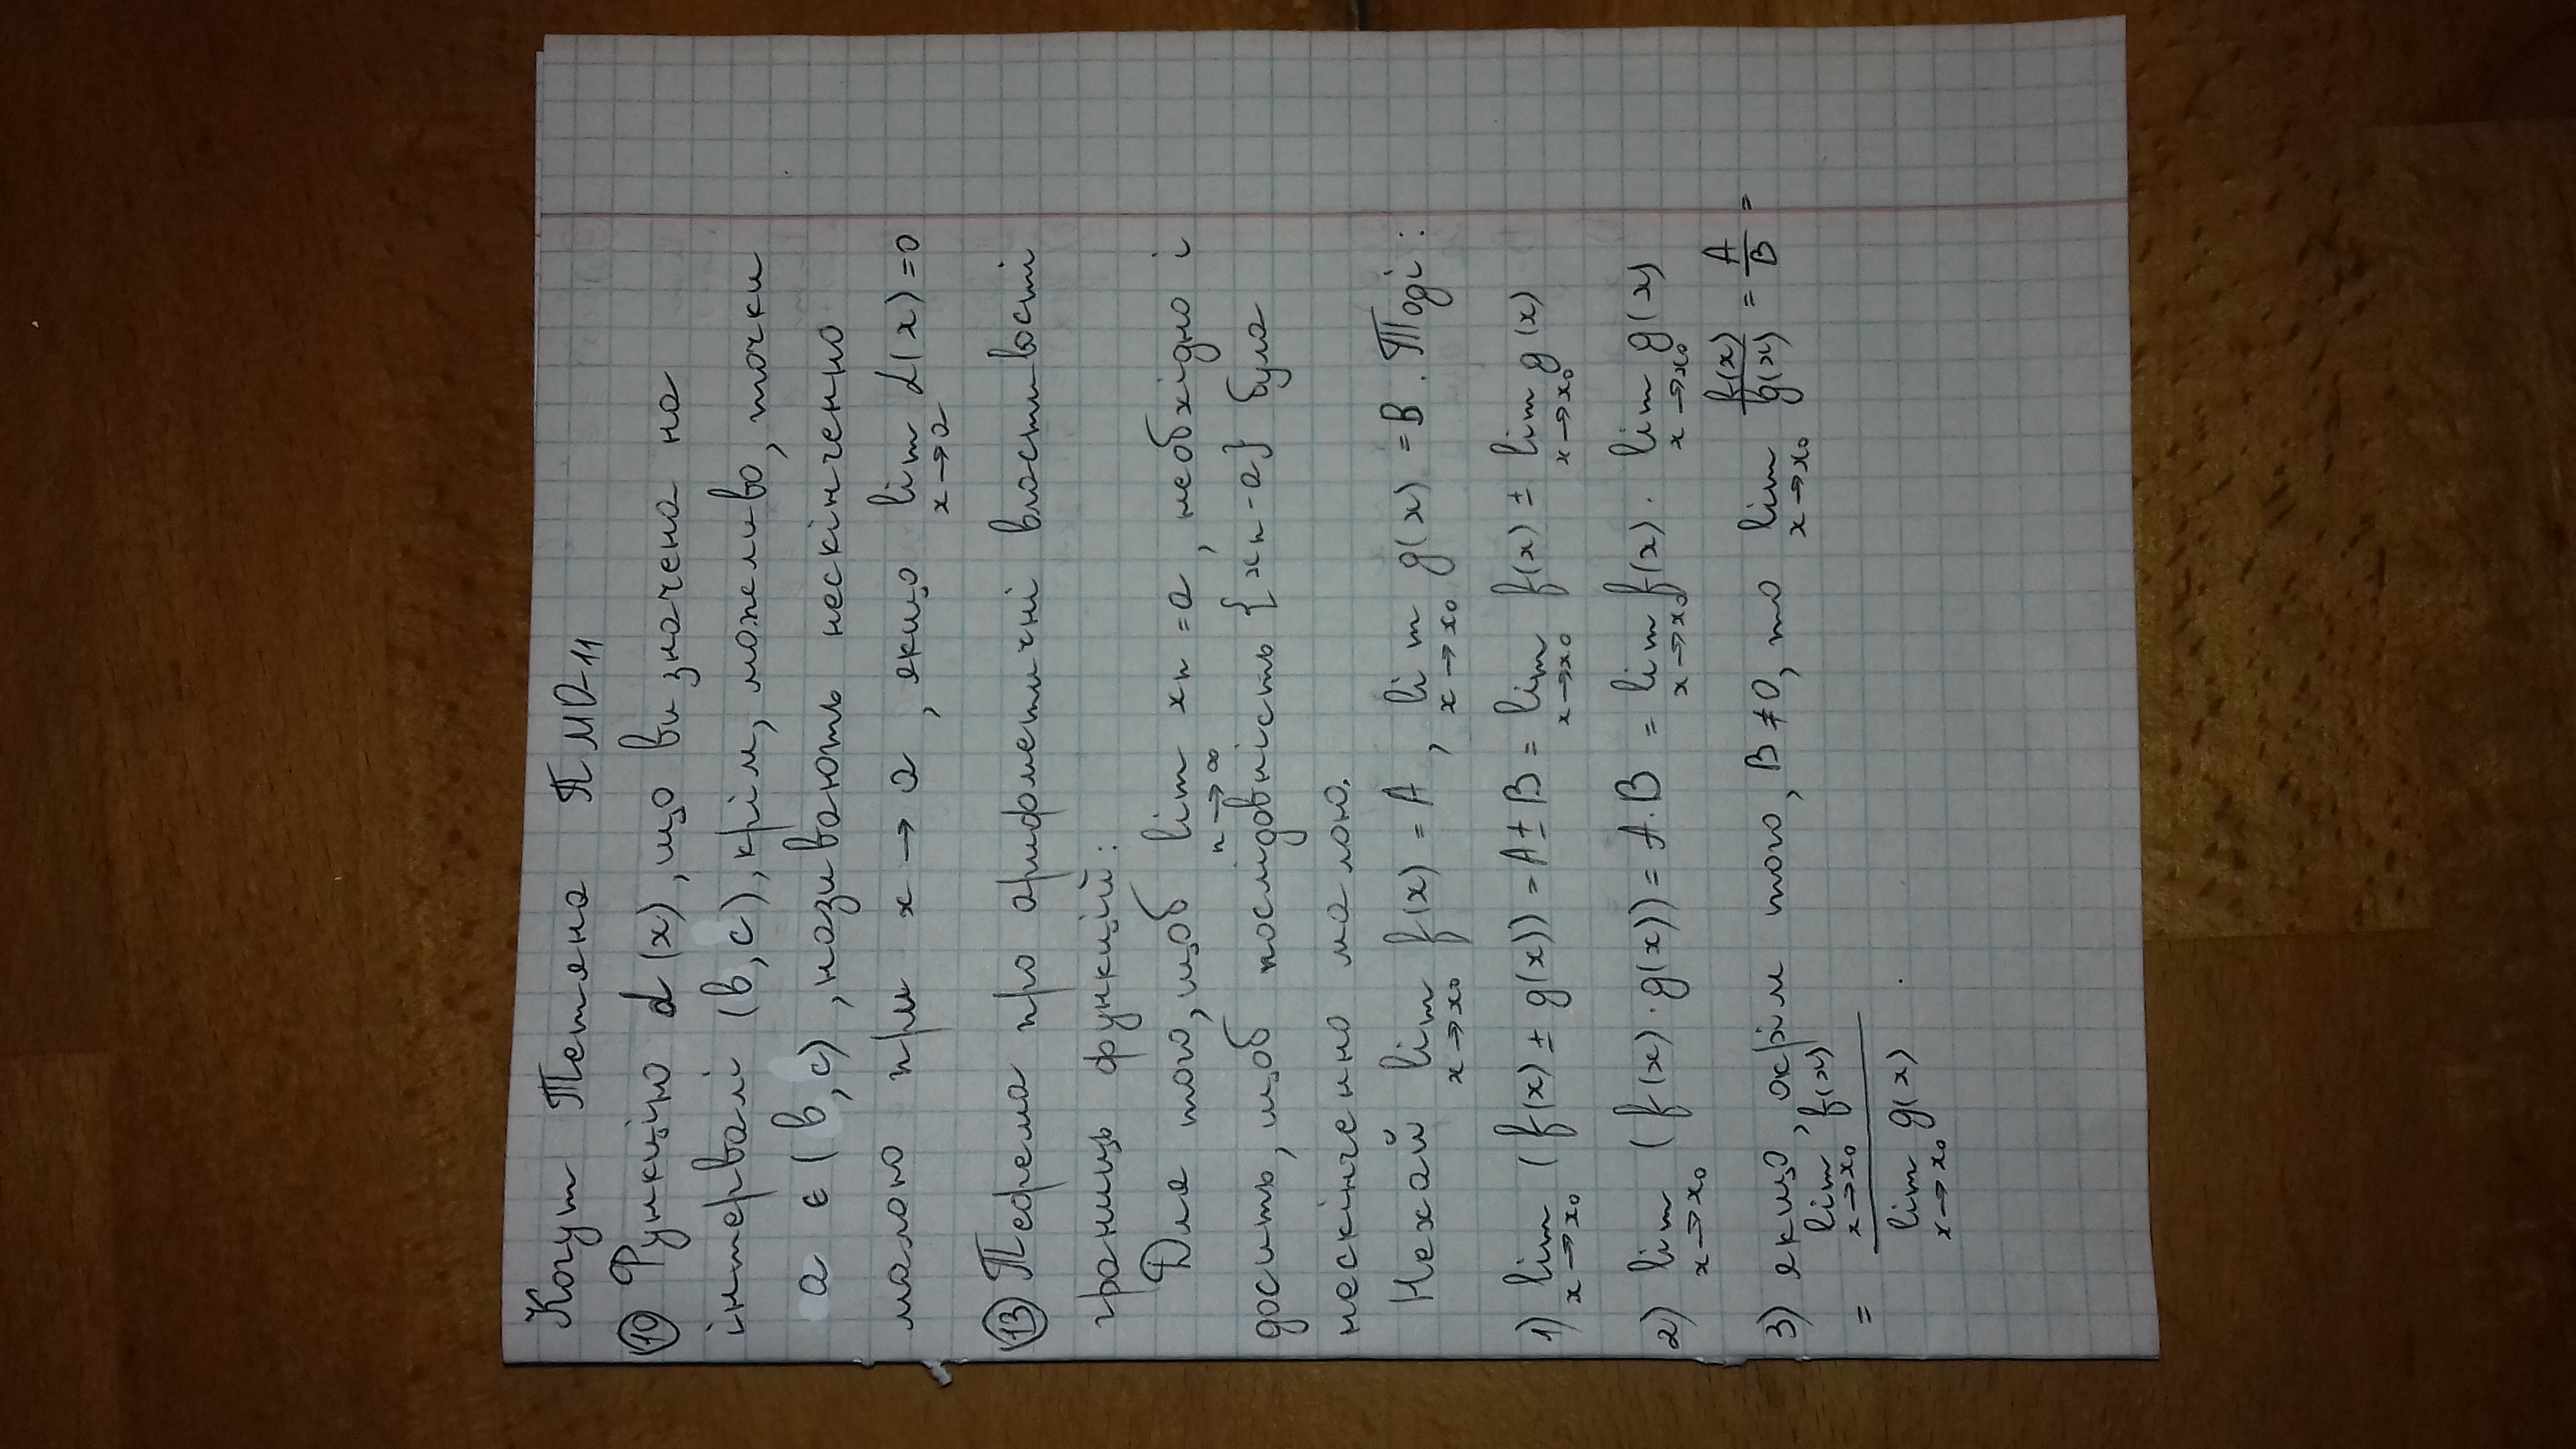 Когут Тетяна ПМО-11
⑩ Функцію α(x), що визначена на
інтервалі (b, c), крім, можливо, точки
a ∈ (b, c), називають нескінченно
малою при x → a, якщо lim α(x) = 0
x → a
⑬ Теорема про арифметичні властивості
границь функцій:
Для того, щоб lim xₙ = a, необхідно і
n → ∞
досить, щоб послідовність {xₙ - a} була
нескінченно малою.
Нехай lim f(x) = A, lim g(x) = B. Тоді:
x → x₀ x → x₀
1) lim (f(x) ± g(x)) = A ± B = lim f(x) ± lim g(x)
x → x₀ x → x₀ x → x₀
2) lim (f(x) · g(x)) = A · B = lim f(x) · lim g(x)
x → x₀ x → x₀ x → x₀
3) якщо, окрім того, B ≠ 0, то lim f(x)/g(x) = A/B =
x → x₀
= lim f(x)
x → x₀
lim g(x) .
x → x₀